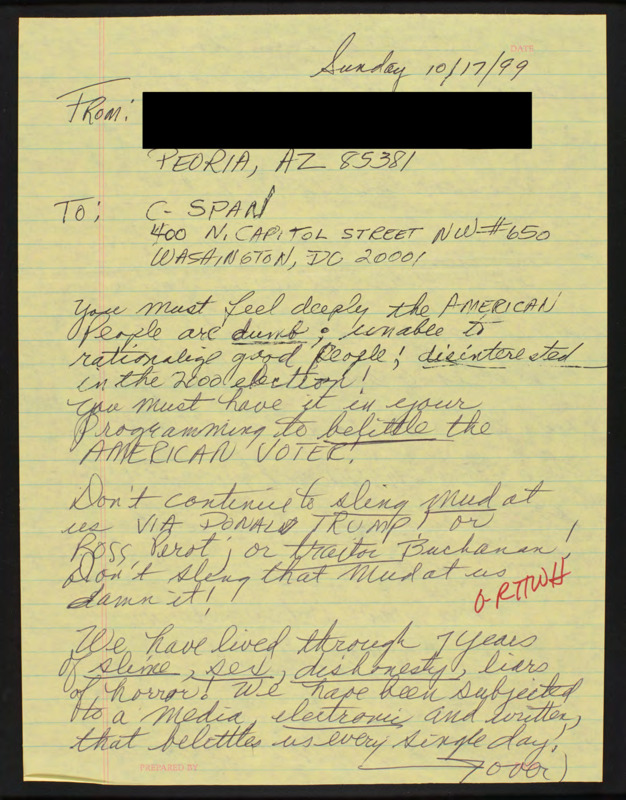 DATE
Sunday 10/17/99
FROM:
PEORIA, AZ 85381
TO: C-SPAN
400 N. CAPITOL STREET NW-#650
WASHINGTON, DC 20001
You must feel deeply the AMERICAN
People are dumb; unable to
rationalize good People; disinterested
in the 2000 election!
You must have it in your
Programming to belittle the
AMERICAN VOTER!
Don't continue to sling mud at
us VIA DONALD TRUMP! or
Ross Perot; or traitor Buchanan!
Don't sling that Mud at us
damn it!
O-RTTWH
We have lived through 7 years
of slime, sex, dishonesty, liars
of horror! We have been subjected
to a media, electronic and written,
that belittles us every single day!
PREPARED BY
(over)